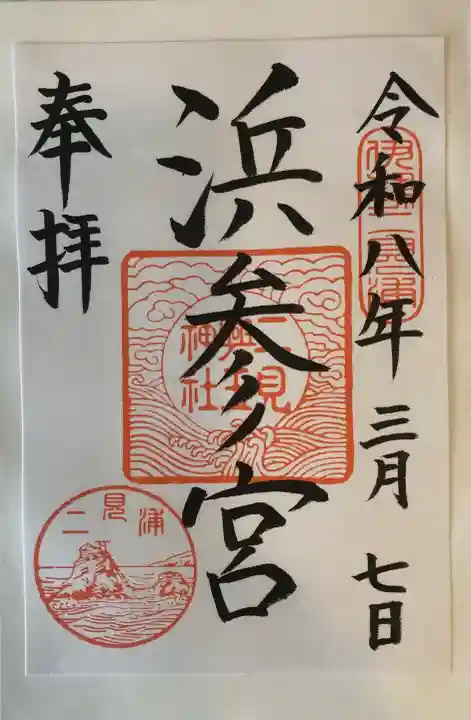 令和八年三月七日
伊勢二見浦
浜参ノ宮
二見
興玉
神社
奉拝
二見浦